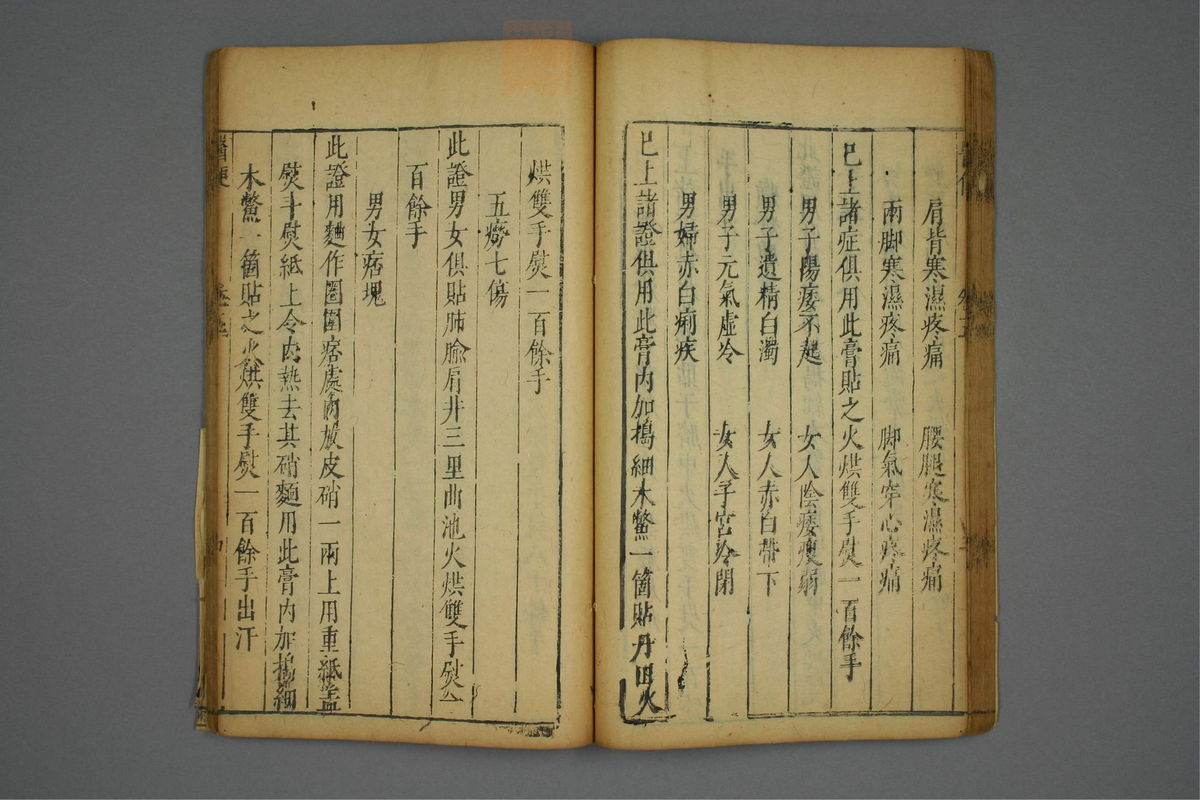 肩背寒濕疼痛　腰腿寒濕疼痛
兩脚寒濕疼痛　脚氣穿心疼痛
已上諸症俱用此膏貼之火烘雙手熨一百餘手
男子陽痿不起　女人陰痿瘦弱
男子遺精白濁　女人赤白帶下
男子元氣虛冷　女人子宮冷閉
男婦赤白痢疾
已上諸證俱用此膏內加搗細木鱉一箇貼丹田火
烘雙手熨一百餘手
五癆七傷
此證男女俱貼肺腧肩井三里曲池火烘雙手熨一
百餘手
男女痞塊
此證用麵作圈圍痞處內放皮硝一兩上用重紙盖
熨斗熨紙上令內熱去其硝麵用此膏內加搗細
木鱉一箇貼之火烘雙手熨一百餘手出汗
醫便